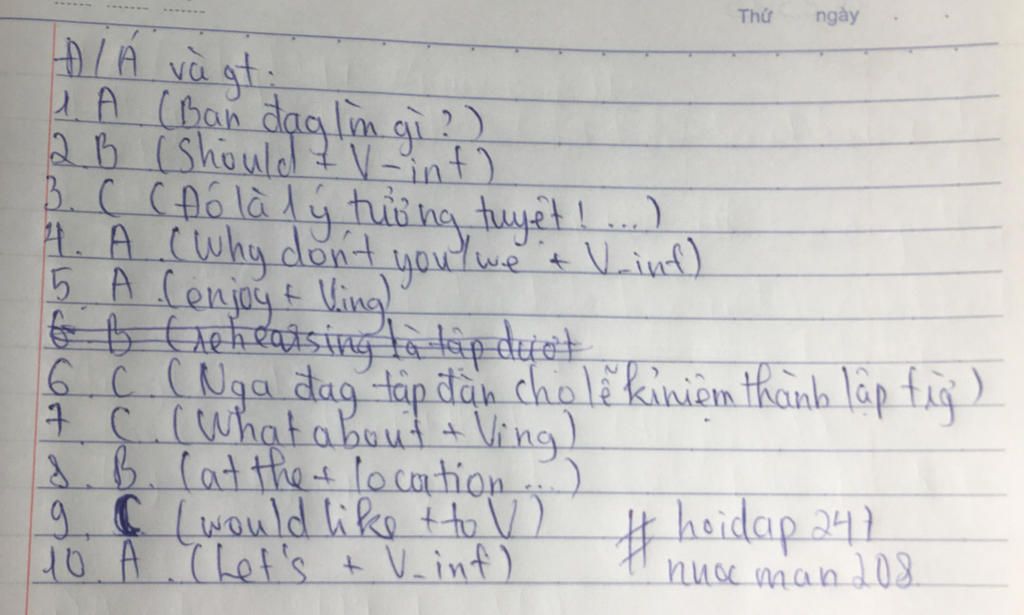 Thứ ngày
Đ/Á và gt:
1. A (Bạn đag làm gì?)
2 B (Should + V-inf)
3. C (Đó là 1 ý tưởng tuyệt! ...)
4. A. (Why don't you/we + V-inf)
5 A. (enjoy + Ving)
6 B (rehearsing là tập dượt
6 C (Nga đag tập đàn cho lễ kỉ niệm thành lập trg)
7. C. (What about + Ving)
8. B. (at the + location ...)
9. C (would like + to V) # hoidap 247
10. A. (Let's + V-inf) nuoc man 208